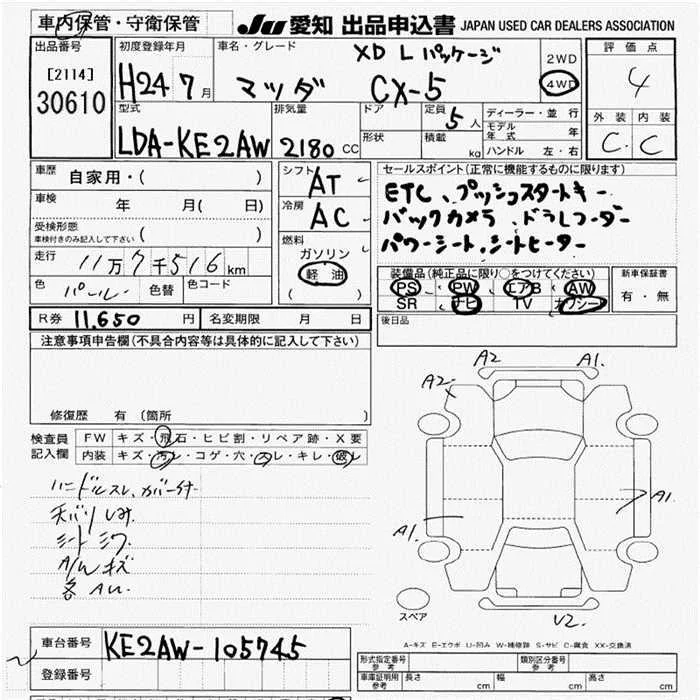 車内保管・守衛保管
JU 愛知 出品申込書 JAPAN USED CAR DEALERS ASSOCIATION
出品番号
[2114]
30610
初度登録年月
H24 7月
車名・グレード
XD Lパッケージ
マツダ CX-5
2WD
4WD
評価点
4
外装 内装
C C
型式
LDA-KE2AW
排気量
2180 CC
ドア
形状
定員 5人
積載 kg
ディーラー・並行
モデル年式 年
ハンドル 左・右
車歴
自家用・( )
車検 年 月( 日)
受検形態
車検付きのみ記入して下さい ( )
走行 11万7千516km
色 パール 色替 色コード
シフト AT
冷房 AC
燃料
ガソリン
軽油
( )
セールスポイント(正常に機能するものに限ります)
ETC、プッシュスタートキー
バックカメラ、ドラレコーダー
パワーシート、シートヒーター
装備品(純正品に限り○をつけてください)
PS PW エアB AW
SR ナビ TV
新車保証書
有・無
R券 11,650円 名変期限 月 日
後日品
注意事項申告欄(不具合内容等は具体的に記入して下さい)
修復歴 有(箇所 )
検査員記入欄
FW キズ・飛石・ヒビ割・リペア跡・X要
内装 キズ・汚レ・コゲ・穴・ ・キレ・破レ
ハンドルスレ、カバー付
天バリしみ
シートシワ
A/Wキズ
各A
A2 A1.
A2
A1. A1.
U2.
スペア
A-キズ E-エクボ U-凹み W-補修跡 S-サビ C-腐食 XX-交換済
車台番号 KE2AW-105745
登録番号
形式指定番号 参考 類別区分番号 参考
車庫証明用 参考 長さ cm 幅 cm 高さ cm